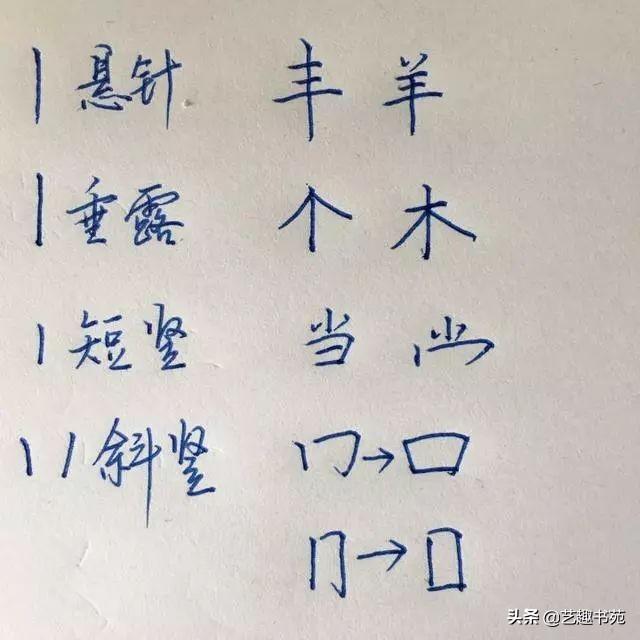 丨悬针 丰 羊
丨垂露 个 木
丨短竖 当
丨丨斜竖 → 口
→
头条 @艺趣书苑